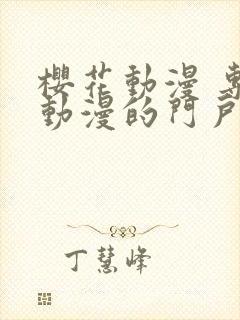 櫻花動漫 專
動漫的門戶
丁慧峰